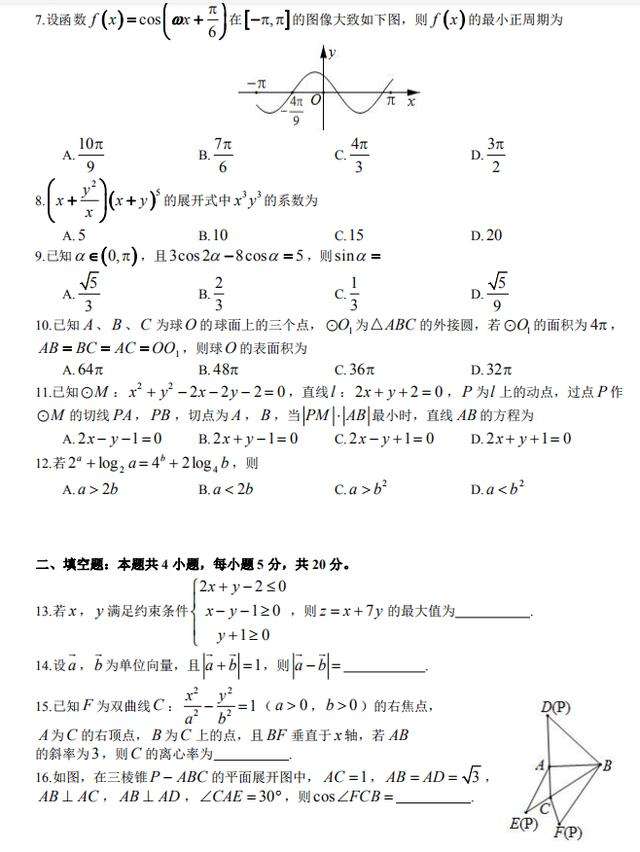 7.设函数 f(x)=cos(ωx+π/6)在[-π,π]的图像大致如下图，则 f(x)的最小正周期为
y
-π
-4π/9 O π x
A. 10π/9 B. 7π/6 C. 4π/3 D. 3π/2
8.(x+y²/x)(x+y)⁵的展开式中x³y³的系数为
A. 5 B.10 C.15 D.20
9.已知α∈(0,π)，且3cos2α-8cosα=5，则sinα=
A. √5/3 B. 2/3 C. 1/3 D. √5/9
10.已知A、B、C为球O的球面上的三个点，⊙O₁为△ABC的外接圆，若⊙O₁的面积为4π，
AB=BC=AC=OO₁，则球O的表面积为
A. 64π B. 48π C. 36π D. 32π
11.已知⊙M：x²+y²-2x-2y-2=0，直线l：2x+y+2=0，P为l上的动点，过点P作
⊙M的切线PA，PB，切点为A，B，当|PM|·|AB|最小时，直线AB的方程为
A. 2x-y-1=0 B. 2x+y-1=0 C. 2x-y+1=0 D. 2x+y+1=0
12.若2ᵃ+log₂a=4ᵇ+2log₄b，则
A. a>2b B. a<2b C. a>b² D. a<b²
二、填空题：本题共4小题，每小题5分，共20分。
2x+y-2≤0
13.若x，y满足约束条件{ x-y-1≥0 ，则z=x+7y的最大值为________.
y+1≥0
14.设a⃗，b⃗为单位向量，且|a⃗+b⃗|=1，则|a⃗-b⃗|=________.
15.已知F为双曲线C：x²/a²-y²/b²=1（a>0，b>0）的右焦点，
A为C的右顶点，B为C上的点，且BF垂直于x轴，若AB
的斜率为3，则C的离心率为________.
16.如图，在三棱锥P-ABC的平面展开图中，AC=1，AB=AD=√3，
AB⊥AC，AB⊥AD，∠CAE=30°，则cos∠FCB=________.
D(P)
A B
C
E(P)
F(P)